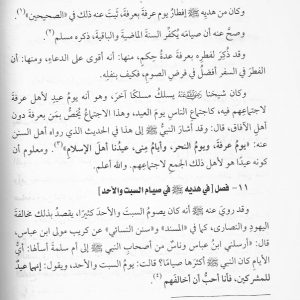 وكان من هديه ﷺ إفطارُ يوم عرفة بعرفة، ثبت عنه ذلك في «الصحيحين»(١).
وصحَّ عنه أن صيامه يُكفِّر السنة الماضية والباقية، ذكره مسلم(٢).
وقد ذُكِرَ لفطره بعرفة عدةُ حِكَم، منها: أنه أقوى على الدعاء، ومنها: أن
الفطر في السفر أفضلُ في فرض الصوم، فكيف بنفله.
وكان شيخنا يسلك مسلكًا آخر، وهو أنه يومُ عيدٍ لأهل عرفة
لاجتماعهم فيه، كاجتماع الناس يومَ العيد، وهذا الاجتماع يُختصُّ بمَن بعرفة دون
أهل الآفاق، قال: وقد أشار النبيُّ ﷺ إلى هذا في الحديث الذي رواه أهل السنن
عنه: «يومُ عرفةَ، ويومُ النحر، وأيامُ منى، عيدُنا أهلَ الإسلام»(٣). ومعلوم أن
كونه عيدًا هو لأهل ذلك الجمعِ لاجتماعهم به. والله أعلم.
١١- فصل [في هديه ﷺ في صيام السبت والأحد]
وقد رويَ عنه ﷺ أنه كان يصومُ السبت والأحد كثيرًا، يقصدُ بذلك مخالفةَ
اليهود والنصارى، كما في «المسند» و«سنن النسائي» عن كريب مولى ابن عباس،
قال: أرسلني ابنُ عباسٍ وناسٌ من أصحاب النبي ﷺ إلى أم سلمة أسألُها: أيُّ
الأيام كان النبيُّ ﷺ أكثرَها صيامًا؟ قالت: يومُ السبت والأحد، ويقول: إنهما عيدٌ
للمشركين، فأنا أحبُّ أن أخالفَهم(٤).